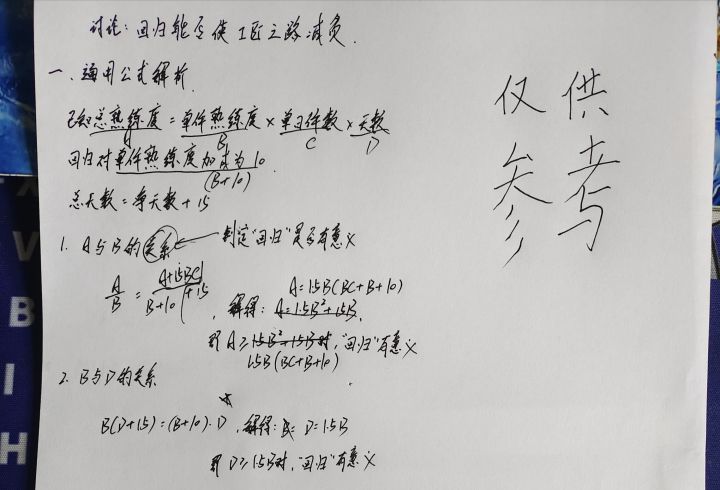 讨论：回归能否使工匠之路减负.
一、通用公式解析.
已知总熟练度=单件熟练度×单日件数×天数
A B C D
回归对单件熟练度加成为10
(B+10)
总天数=净天数+15
1. A与B的关系 ← 判定"回归"是否有意义
A/B = (A+15BC)/(B+10) + 15
A=1.5B(BC+B+10)
解得: A=1.5B²+15B,
即 A≥1.5B²+15B时,"回归"有意义
1.5B(BC+B+10)
2. B与D的关系
B(D+15)=(B+10)·D, 解得: B= D=1.5B
即 D≥1.5B时,"回归"有意义
仅供
参考
V
B
I
H